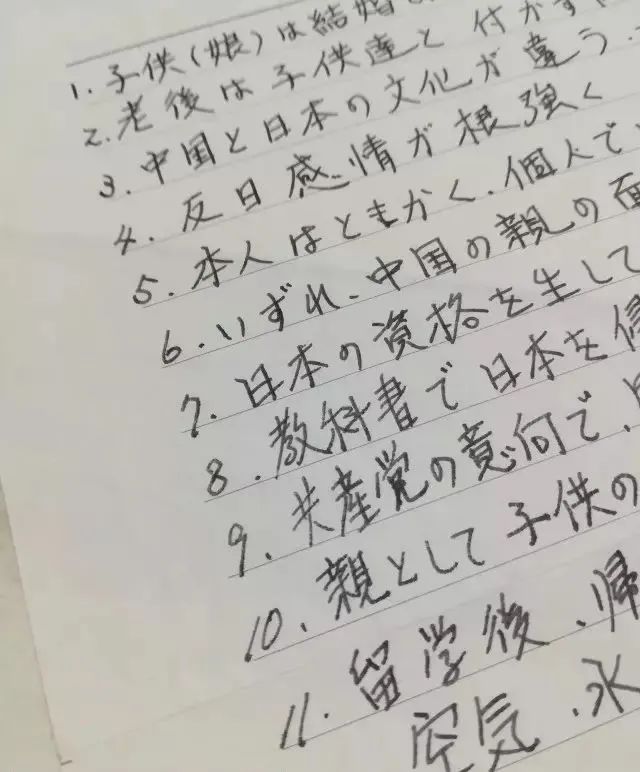 1. 子供(娘)は結婚
2. 老後は子供達と 付かず
3. 中国と日本の文化が違う
4. 反日感情が根強く
5. 本人はともかく、個人で
6. いずれ、中国の親の面
7. 日本の資格を生して
8. 教科書で日本を侵
9. 共産党の意向で、
10. 親として子供の
11. 留学後、帰
空気、水